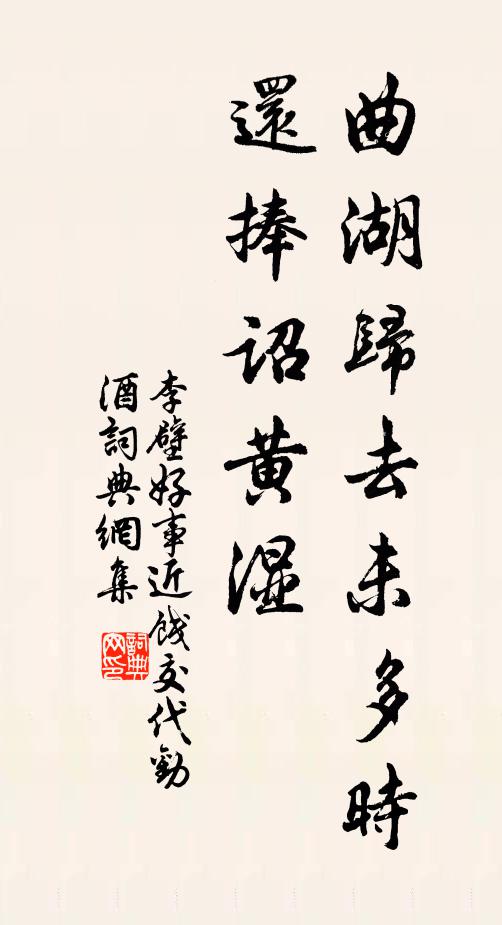 曲湖歸去未多時
還捧詔黄濕
李壁好事近餞交代勸
酒詞典網集
詞典
网印